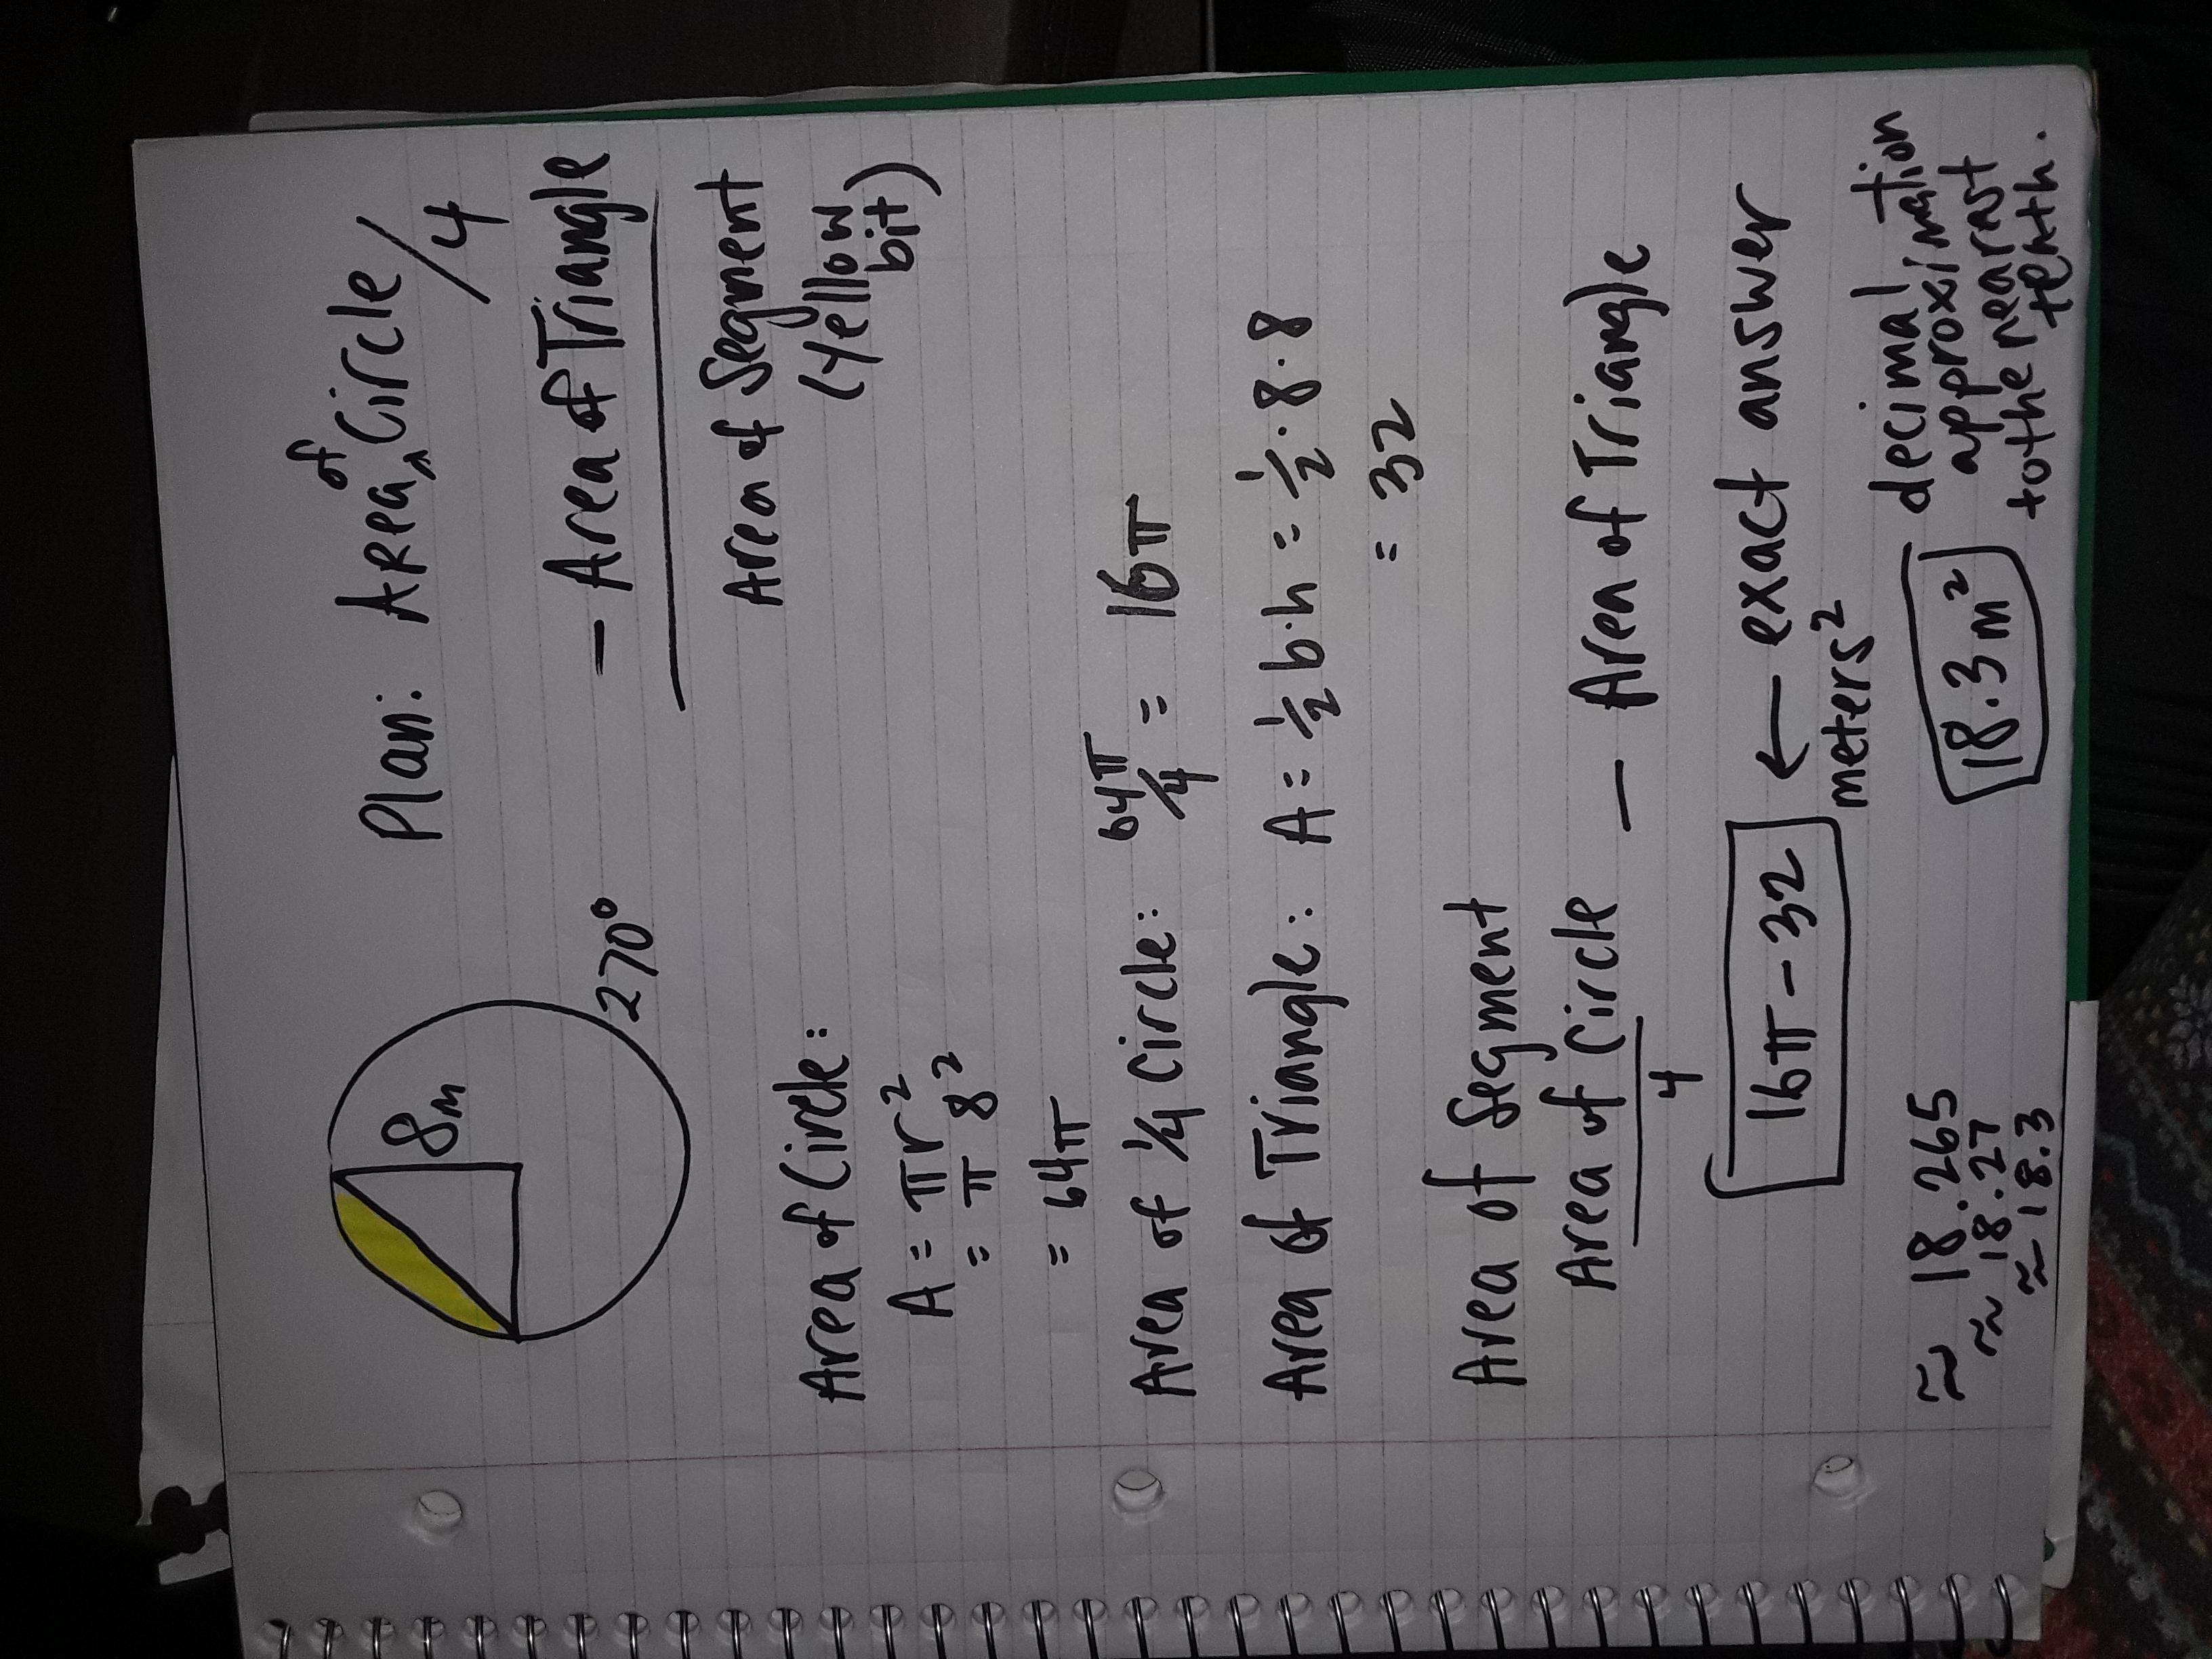 Plan: Area of Circle/4
- Area of Triangle
Area of Segment
(yellow
bit)
8m
270°
Area of Circle:
A = πr²
= π 8²
= 64π
Area of 1/4 Circle: 64π/4 = 16π
Area of Triangle: A = 1/2 b·h = 1/2 · 8 · 8
= 32
Area of Segment
Area of Circle/4 - Area of Triangle
16π - 32 ← exact answer
meters²
≈ 18.265
≈ 18.27
≈ 18.3
18.3 m²
decimal
approximation
to the nearest
tenth.